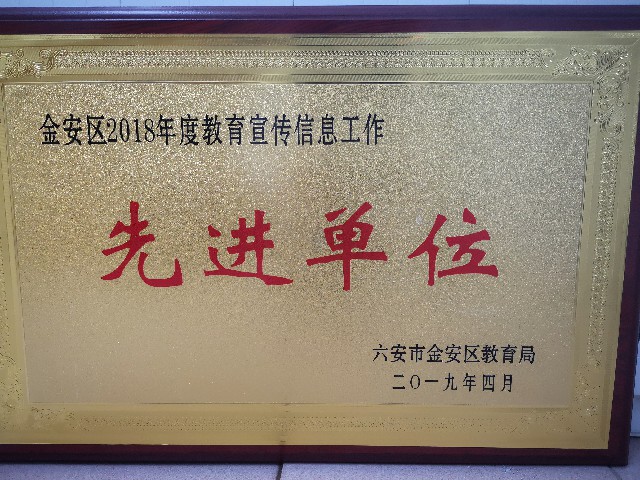 金安区2018年度教育宣传信息工作
先进单位
六安市金安区教育局
二〇一九年四月